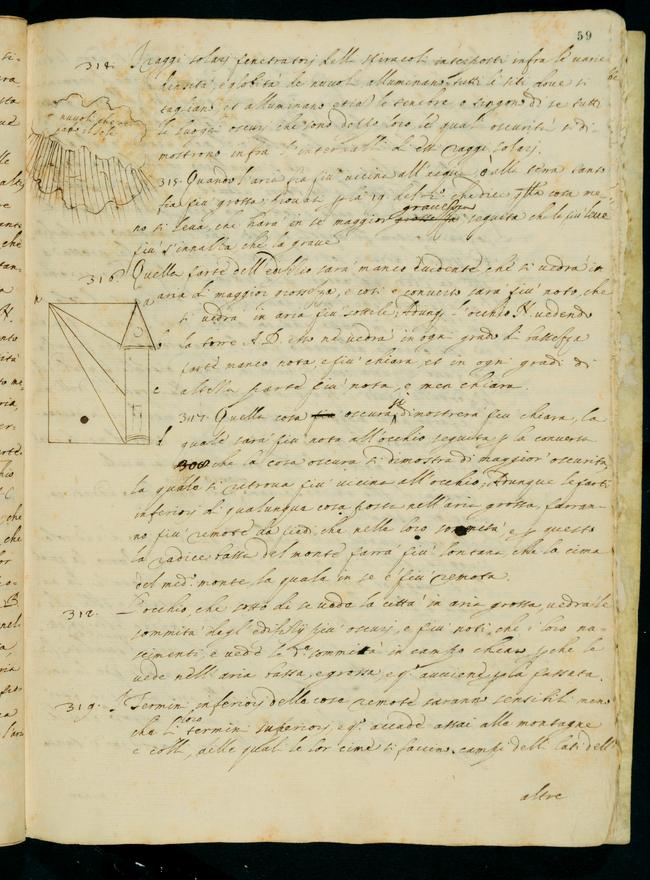 59
314. I raggi solari penetratori delli spiracoli interposti infra le varie
densità, e globità de nuvoli alluminano tutti li siti dove si
tagliano et alluminano etia le tenebre e tengon di se tutti
li luoghi oscuri che sono doppo loro, le quali oscurità si di-
mostrono infra l'intervalli d'essi raggi solari.
nuvoli
sole
315. Quando l'aria sia più vicina all'acqua, ò alla terra tanto
fia più grossa, provasi p la 19 del 2º che dice qlla cosa me-
gravezza
no si leva, che harà in se maggior grossezza seguita che le più lieve
più s'innalza che la grave
316. Quella parte dell'edifitio sarà manco evidente che si vedrà in
aria di maggior grossezza, e così e converso sarà più noto, che
si vedrà in aria più sottile; Dunq. l'occhio N. vedendo
la torre A. D. esso ne vedrà in ogni grado di bassezza
parte manco nota, e più chiara, et in ogni gradi di
altezza parte più nota, e men chiara.
n
a
b
c
d
317. Quella cosa oscura si dimostrerà più chiara, la
quale sarà più nota all'occhio seguita p la conversa
308 che la cosa oscura si dimostra di maggior oscurità,
la quale si ritrova più vicina all'occhio; Dunque le parti
inferiori di qualunque cosa posta nell'aria grossa, parran-
no più remote da piedi che nelle loro sommità, e p questo
la radice bassa del monte parrà più lontana, che la cima
del med.º monte, la quale in se è più remota.
312. L'occhio, che sotto di se vede la città in aria grossa, vedrà le
sommità degl'edifitij più oscuri, e più noti, che i loro na-
scimenti, e vede le d.e sommità in campo chiaro, perche le
vede nell'aria bassa, e grossa e q.º avviene p la passata.
319. I Termini inferiori delle cose remote saranno sensibili meno
loro
che li termini superiori, e q.º accade assai alle montagne
e colli, delle quali le lor cime si faccino campi delli lati dell'
altre